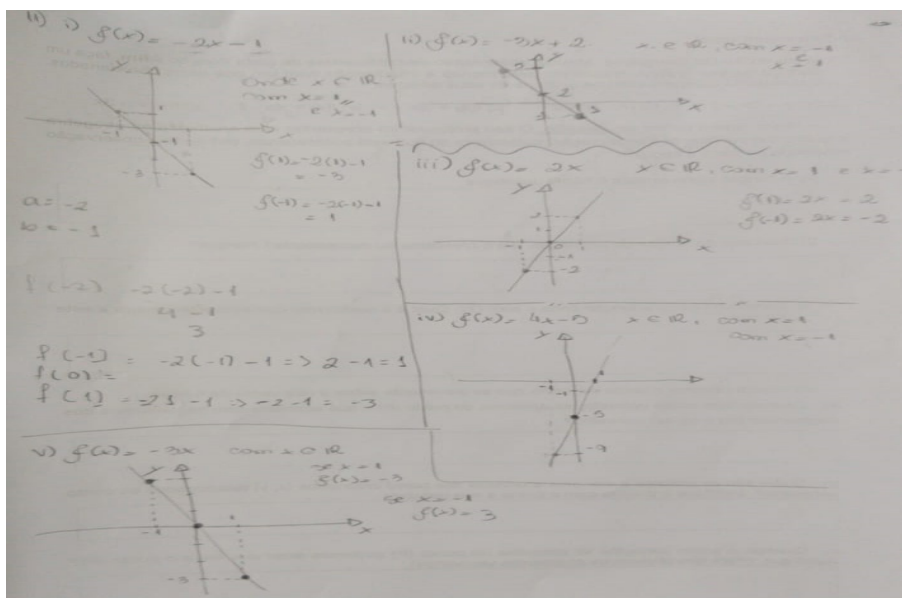 11) i) f(x) = -2x - 1
onde x ∈ ℝ
com x = 1,,
e x = -1
y
x
1
-1
-1
-3
f(1) = -2(1) - 1
= -3
f(-1) = -2(-1) - 1
= 1
a = -2
b = -1
f(-2) -2(-2) - 1
4 - 1
3
f(-1) = -2(-1) - 1 => 2 - 1 = 1
f(0) =
f(1) = -21 - 1 => -2 - 1 = -3
ii) f(x) = -3x + 2 x ∈ ℝ, com x = -1
e
x = 1
y
2
x
iii) f(x) = 2x x ∈ ℝ, com x = 1 e x = -
f(1) = 2x = 2
f(-1) = 2x = -2
y
2
-1
0
-1
-2
x
iv) f(x) = 4x - 5 x ∈ ℝ, com x = 1
com x = -1
y
x
-1
-1
-5
-9
v) f(x) = -3x com x ∈ ℝ
se x = 1
f(x) = -3
se x = -1
f(x) = 3
y
-1
1
x
-3